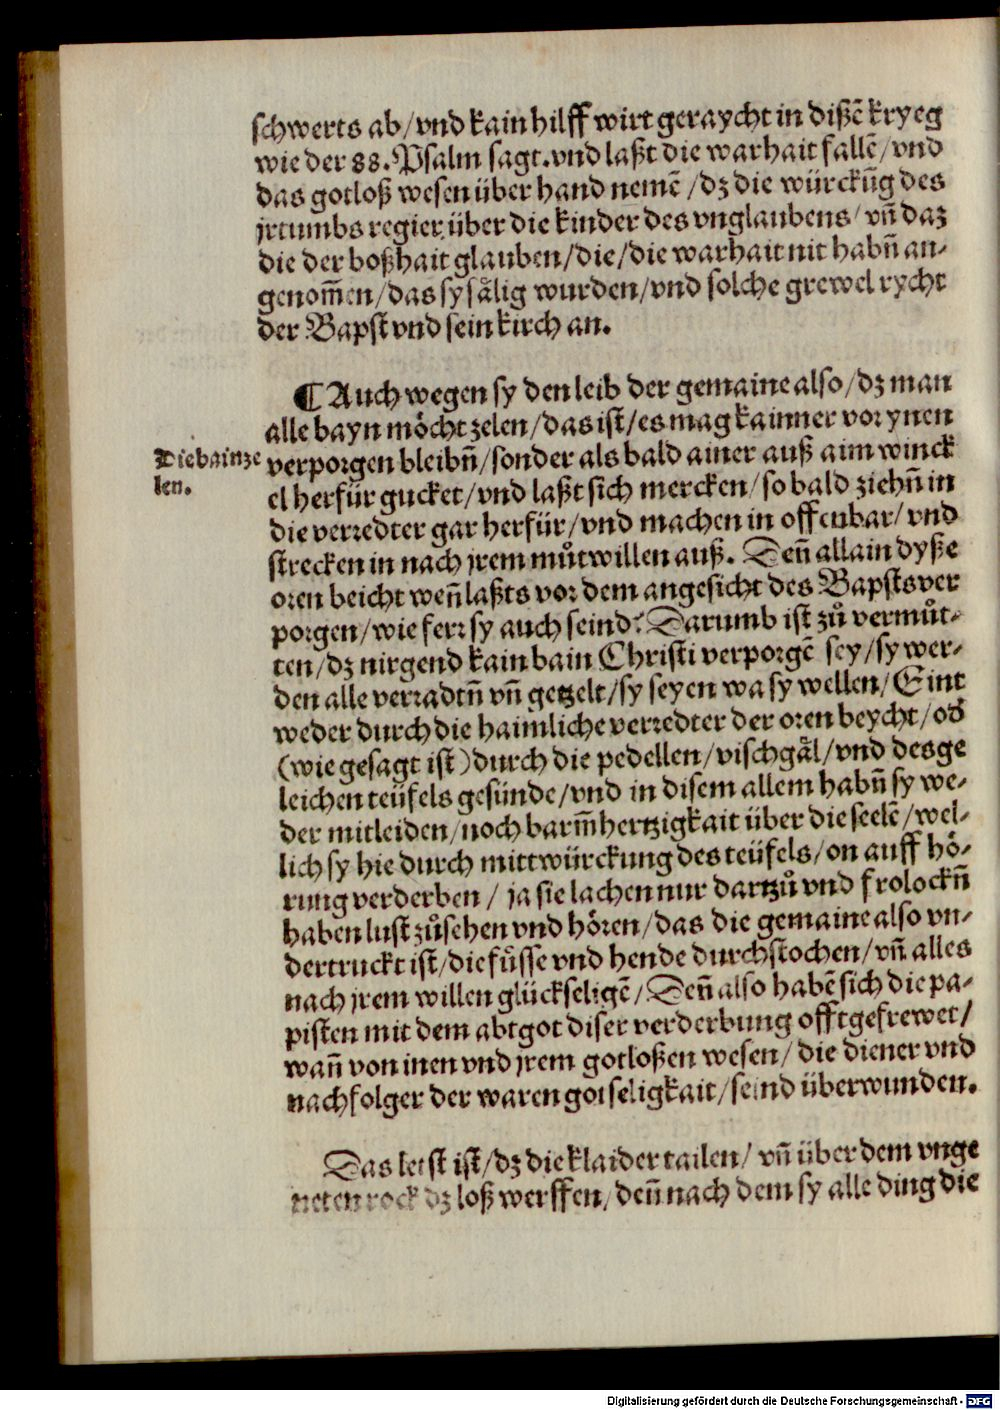 schwerts ab/vnd kain hilff wirt geraycht in dißẽ kryeg
wie der 88. Psalm sagt. vnd laßt die warhait fallẽ/vnd
das gotloß wesen über hand nemẽ/dz die würckũg des
jrtumbs regier über die kinder des vnglaubens/vñ daz
die der boßhait glauben/die/die warhait nit habñ an-
genom̃en/das sy sålig wurden/vnd solche grewel rycht
der Bapst vnd sein kirch an.
¶ Auch wegen sy den leib der gemaine also/dz man
alle bayn möcht zelen/das ist/es mag kainner vor ynen
Die bain ze
verporgen bleibñ/sonder als bald ainer auß aim winck
len.
el herfür gucket/vnd laßt sich mercken/so bald ziehñ in
die verredter gar herfür/vnd machen in offenbar/vnd
strecken in nach jrem můtwillen auß. Deñ allain dyße
oren beicht weñ laßts vor dem angesicht des Bapsts ver
porgen/wie ferr sy auch seind? Darumb ist zů vermůt-
ten/dz nirgend kain bain Christi verporgẽ sey/sy wer-
den alle verradtñ vñ getzelt/sy seyen wa sy wellen/Eint
weder durch die haimliche verredter der oren beycht/od̕
(wie gesagt ist) durch die pedellen/vischgål/vnd desge
leichen teüfels gesünde/vnd in disem allem habñ sy we-
der mitleiden/noch barm̃hertzigkait über die seelẽ/wel-
lich sy hie durch mittwürckung des teüfels/on auff hö-
rung verderben/ ja sie lachen nur dartzů vnd frolockñ
haben lust zůsehen vnd hören/das die gemaine also vn-
dertruckt ist/die füsse vnd hende durchstochen/vñ alles
nach jrem willen glückseligẽ/Deñ also habẽ sich die pa-
pisten mit dem abtgot diser verderbung offt gefrewet/
wañ von inen vnd jrem gotloßen wesen/ die diener vnd
nachfolger der waren gotseligkait/seind überwunden.
Das letst ist/dz die klaider tailen/ vñ über dem vnge
neten rock dz loß werffen/deñ nach dem sy alle ding die
Digitalisierung gefördert durch die Deutsche Forschungsgemeinschaft - DFG